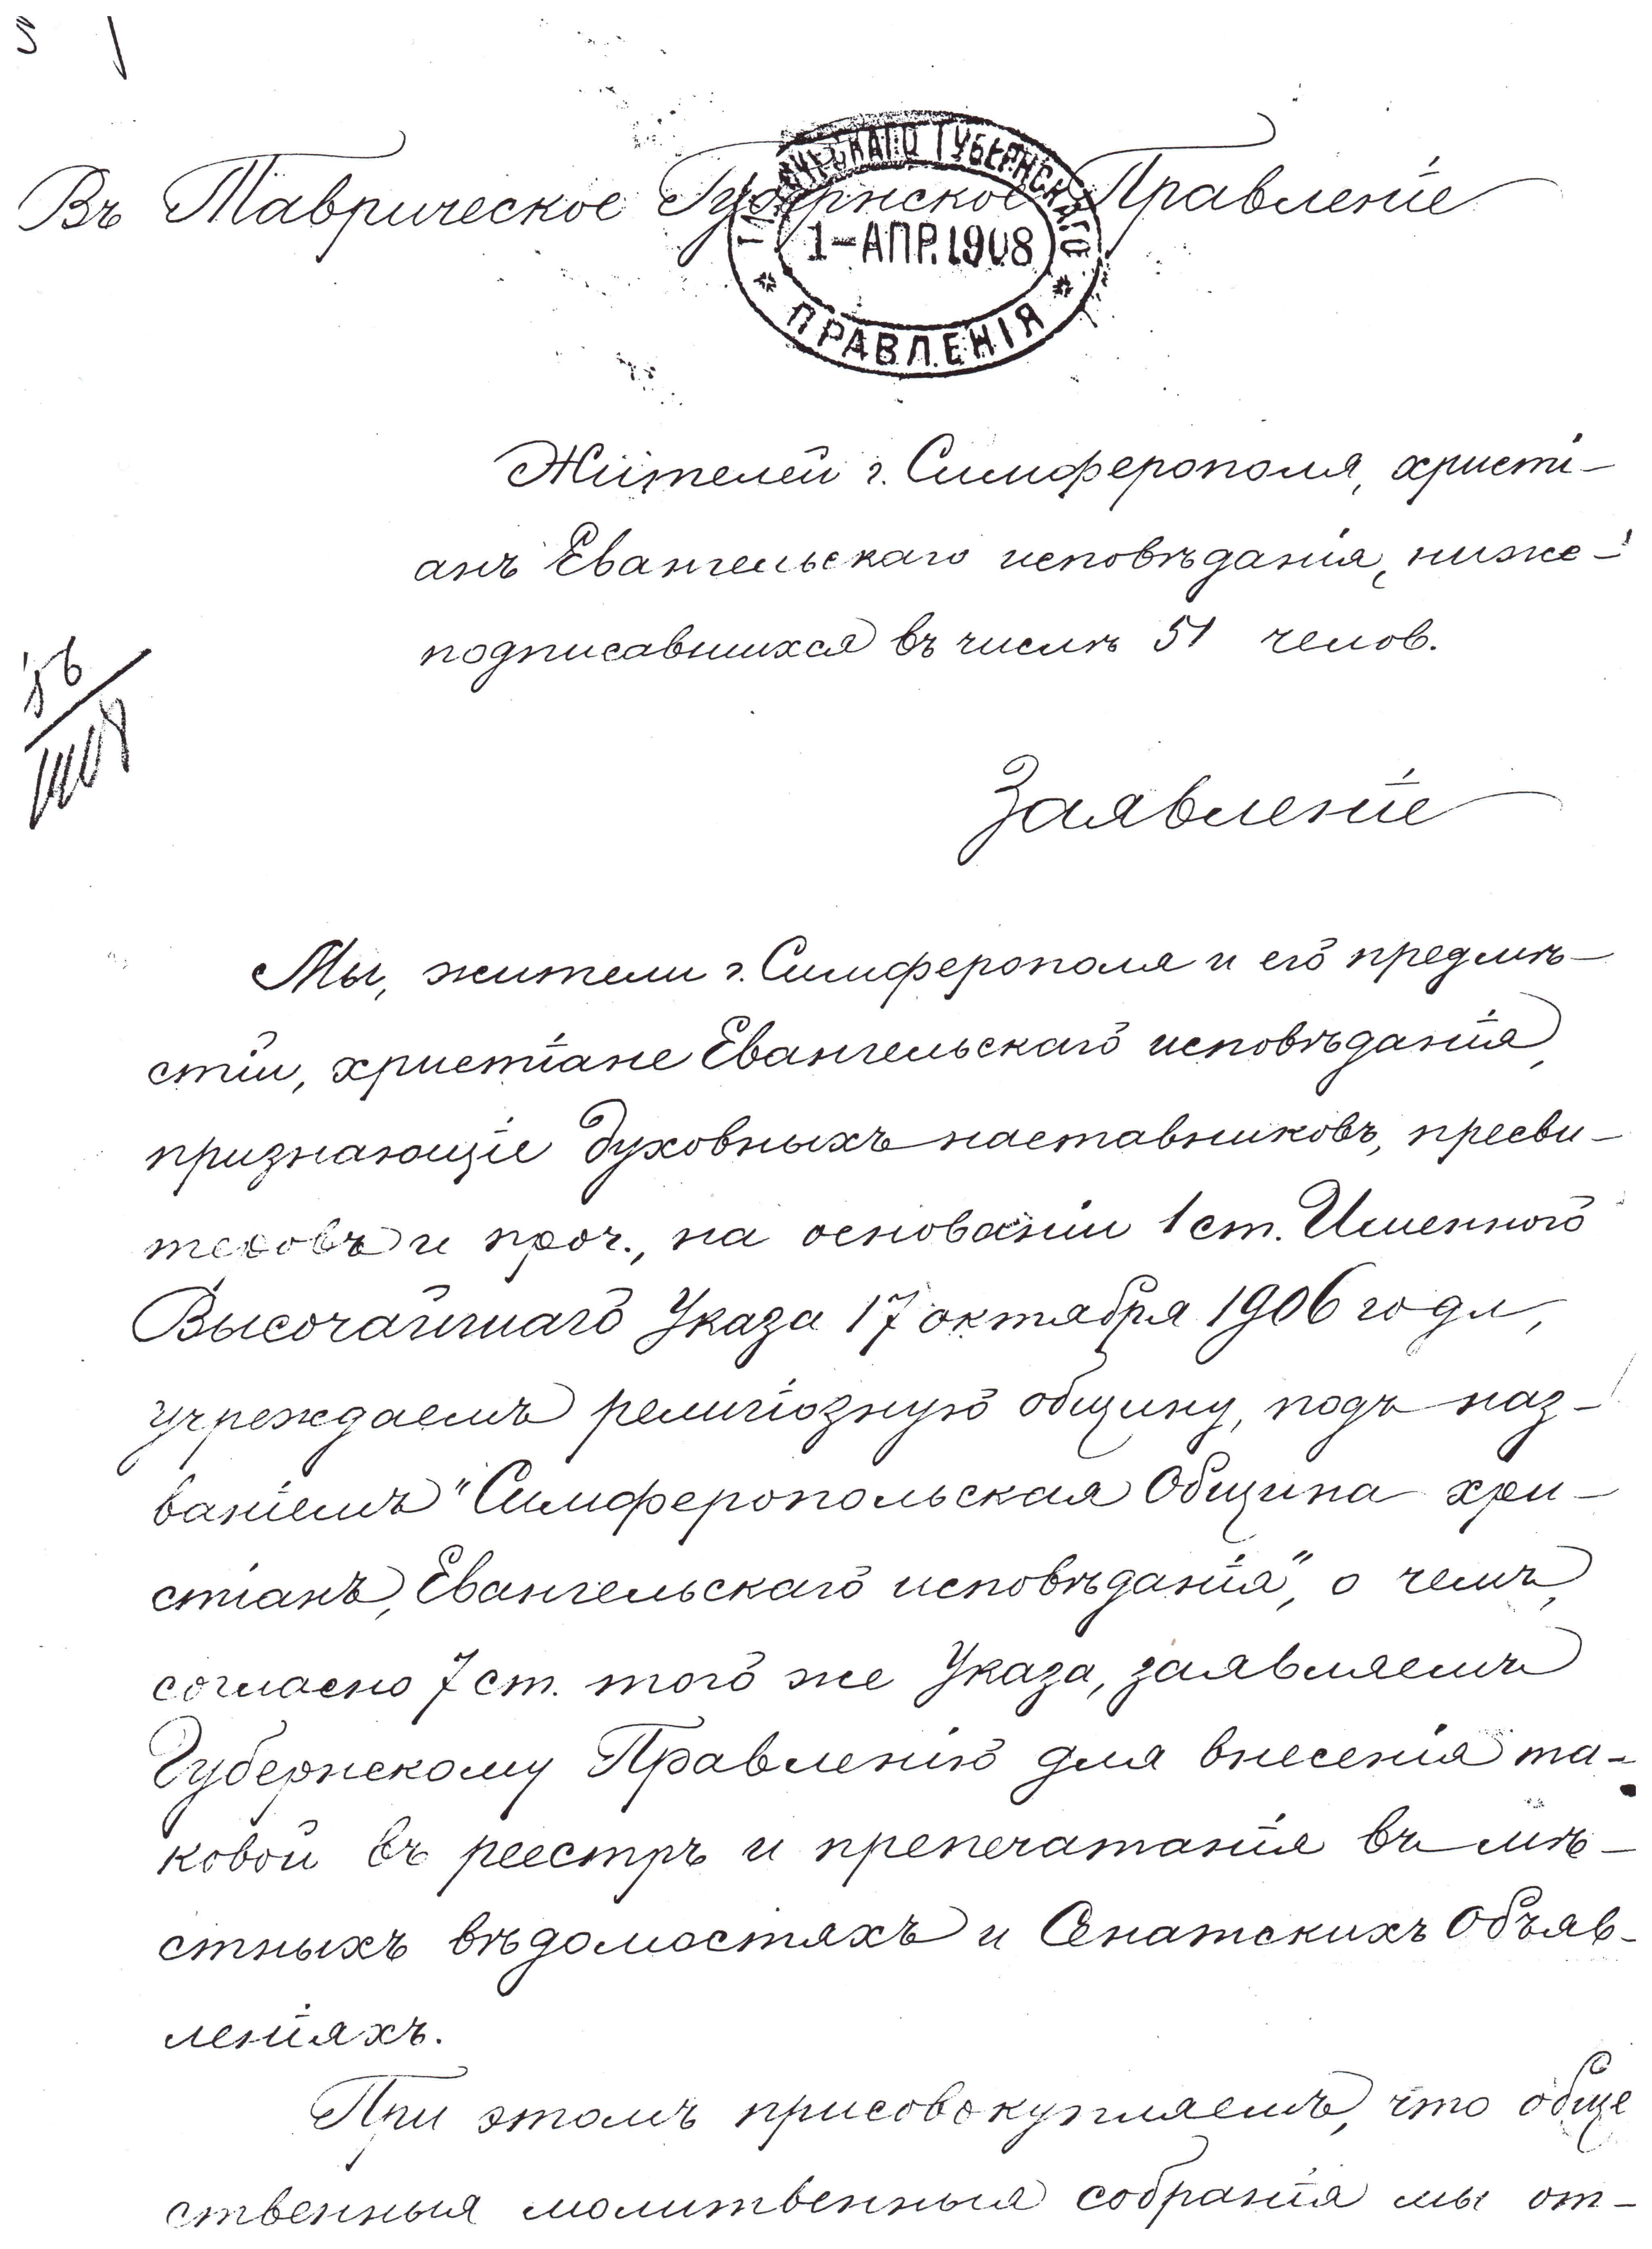 Въ Таврическое Губернское Правленіе
ТАВРИЧЕСКАГО ГУБЕРНСКАГО
1-АПР.1908
ПРАВЛЕНІЯ
Жителей г. Симферополя, христі-
анъ Евангельскаго исповѣданія, ниже-
подписавшихся въ числѣ 51 челов.
Заявленіе
Мы, жители г. Симферополя и его предмѣ-
стій, христіане Евангельскаго исповѣданія,
признающіе духовныхъ наставниковъ, пресви-
теровъ и проч., на основаніи 1 ст. Именного
Высочайшаго Указа 17 октября 1906 года,
учреждаемъ религіозную общину, подъ наз-
ваніемъ "Симферопольская Община хри-
стіанъ, Евангельскаго исповѣданія", о чемъ,
согласно 7 ст. того же Указа, заявляемъ
Губернскому Правленію для внесенія та-
ковой въ реестръ и препечатанія въ мѣ-
стныхъ вѣдомостяхъ и Сенатскихъ Объяв-
леніяхъ.
При этомъ присовокупляемъ, что обще
ственныя молитвенныя собранія мы от-